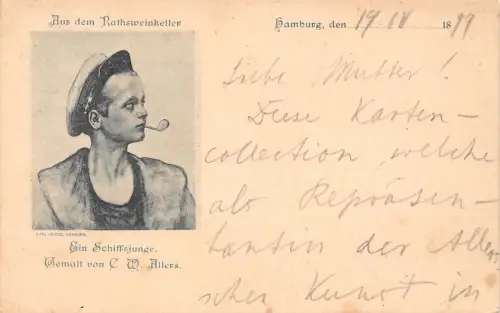 Aus dem Rathsweinkeller
Hamburg, den 19 IV 1899
Liebe Mutter!
Diese Karten-
collection welche
als Repräsen-
tantin der Allers
schen Kunst in
Ein Schiffsjunge.
Gemalt von C. W. Allers.